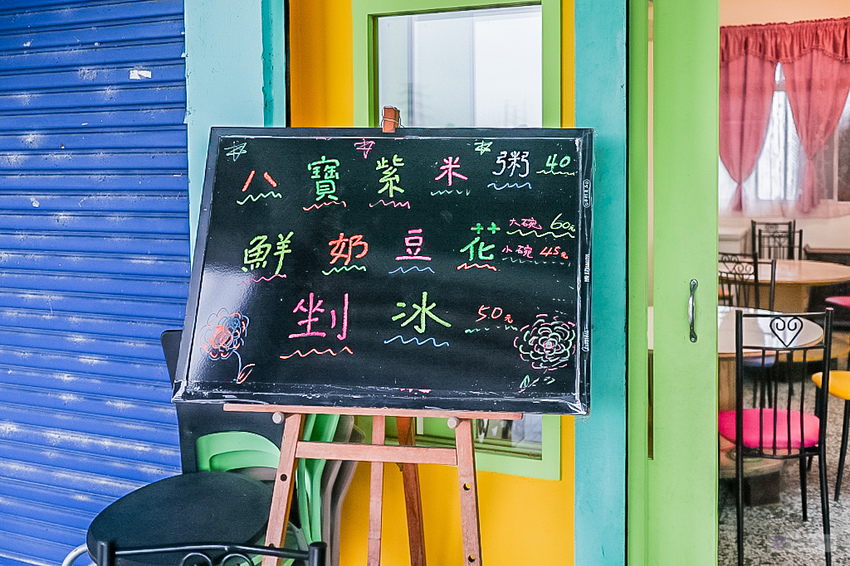 八寶紫米粥 40
鮮奶豆花 大碗 60元
小碗 45元
剉冰 50元